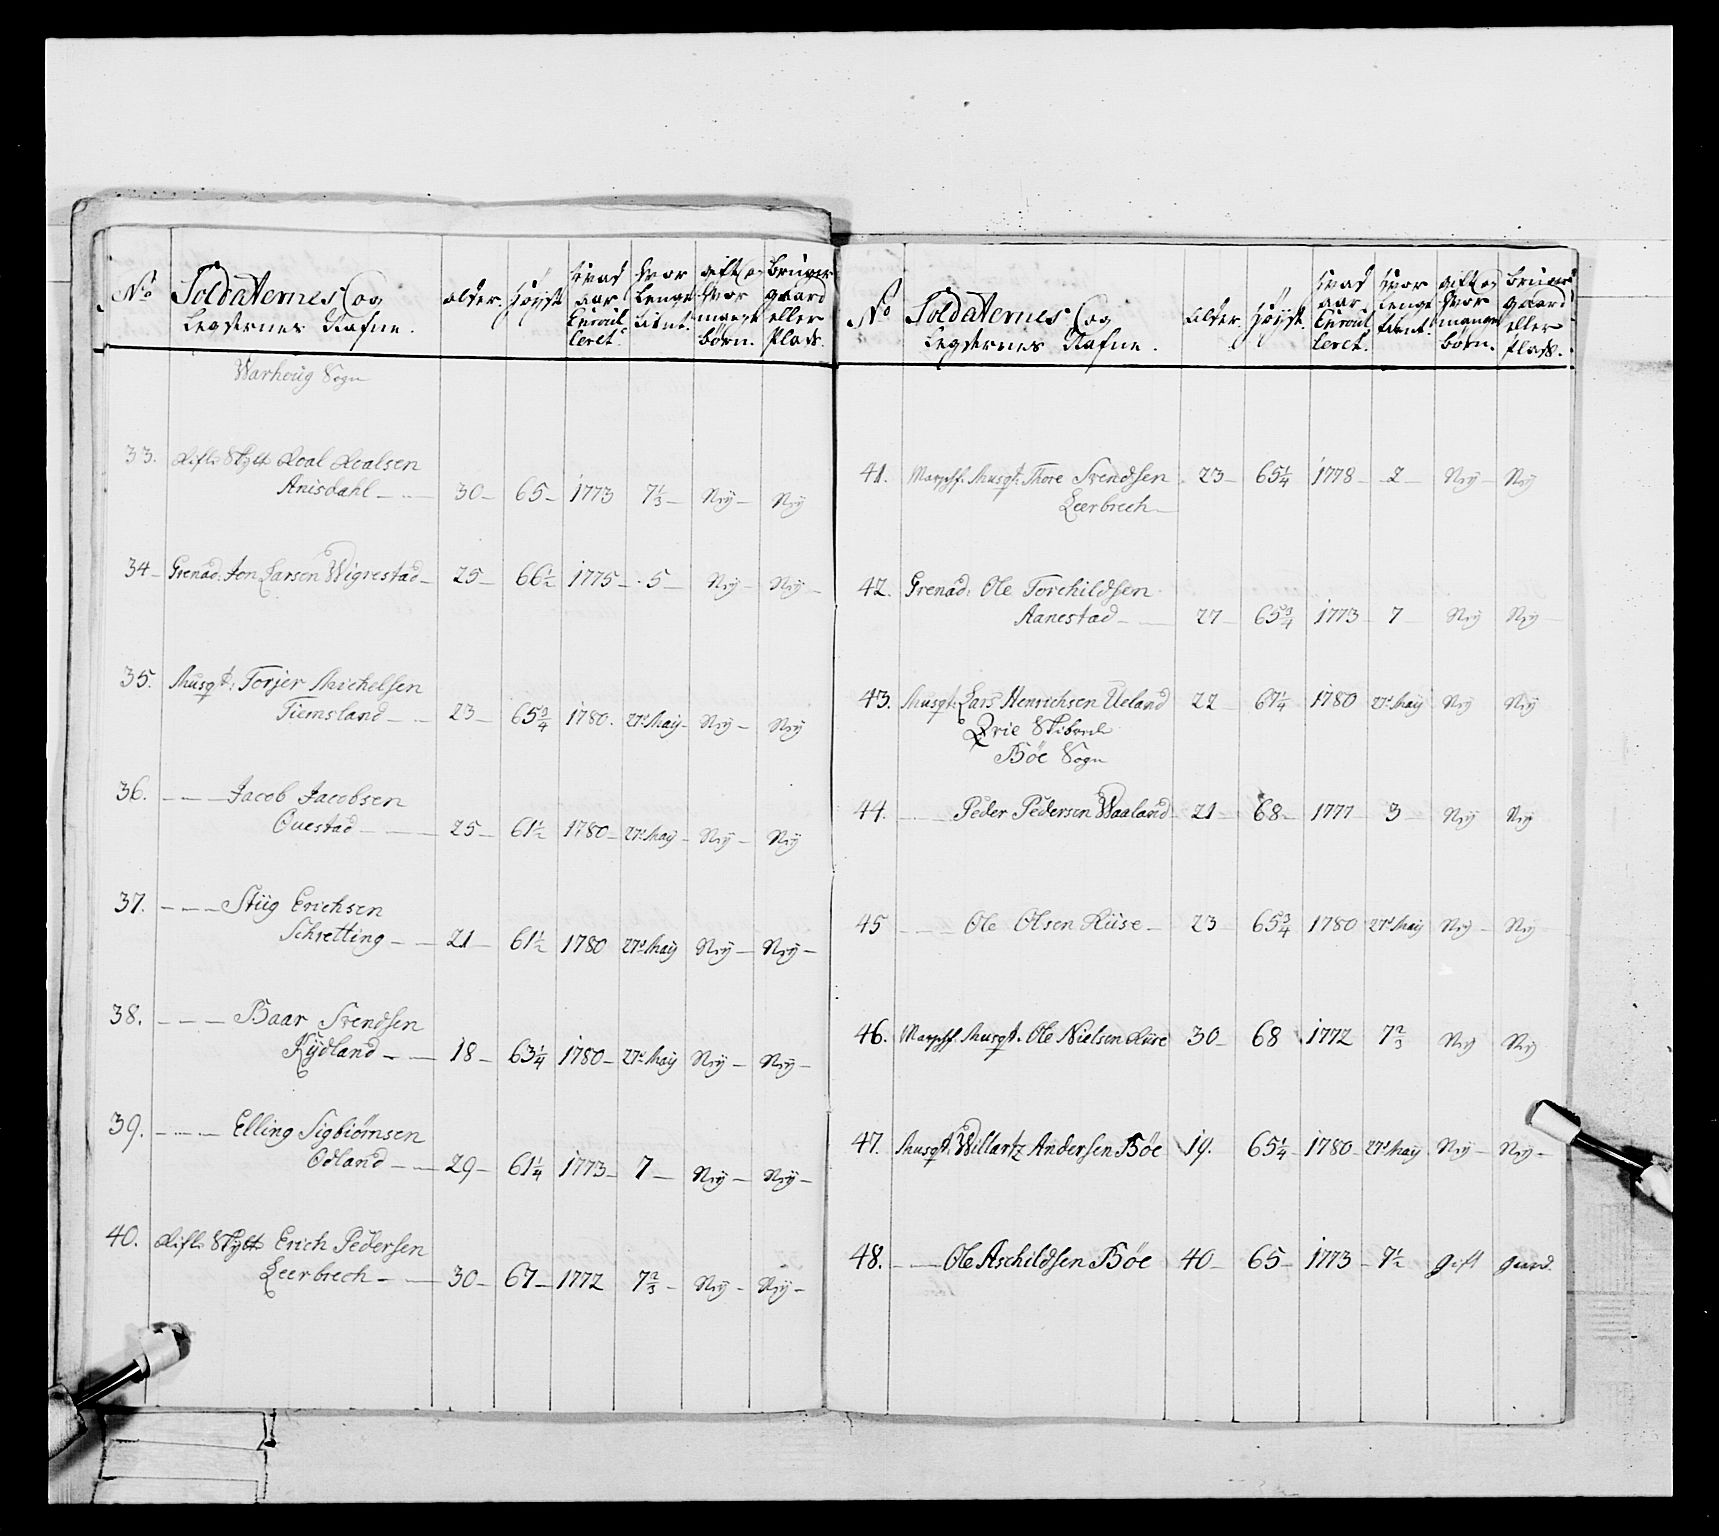 No Soldaternes og Legdernes Nafne. alder. Høÿde hvad aar Enroulleret. hvor lenge tient. gift og hvor mange børn. bruger gaard eller Plads.
Warhoug Sogn
33. Skytt Roal Roalsen
Anisdahl — 30 — 65 — 1773 7 1/3 — Nÿ — Nÿ
34 — Grenad: Jon Larsen Wigrestad — 25 — 66 1/2 1775 — 5 — Nÿ — Nÿ —
35. Musqt: Torjer Michelsen
Tiemsland — 23 — 65 3/4 1780. 27de Maÿ — Nÿ — Nÿ
36. — — Jacob Jacobsen
Ouestad — 25 — 61 1/2 1780 — 27de Maÿ — Nÿ — Nÿ
37. — — — Stiig Erichsen
Schretting — 21 — 61 1/2 1780 27de Maÿ Nÿ — Nÿ —
38. — — — Baar Svendsen
Kÿdland — 18 — 63 1/4 1780 — 27de Maÿ Nÿ — Nÿ —
39. — — — Elling Sigbiørnsen
Odland — 29 — 61 1/4 1773 — 7 — Nÿ — Nÿ —
40. Skytt Erich Pedersen
Leerbrech — 30 — 67 — 1772 7 2/3 — Nÿ — Nÿ —
No Soldaternes og Legdernes Nafne. alder. Høÿde hvad aar Enroulleret. hvor lenge tient. gift og hvor mange børn. bruger gaard eller Plads.
41. Musqt: Thore Svendsen 23 — 65 1/4 1778 — 2 — Nÿ — Nÿ
Leerbrech —
42. Grenad: Ole Torchildsen
Aanestad — 27 — 65 3/4 1773 — 7 — Nÿ Nÿ —
43. Musqt: Lars Henrichsen Ueland 22 — 67 1/4 1780 27de Maÿ Nÿ Nÿ
Qvie Skibrede
Bøe Sogn
44. — Peder Pedersen Waaland 21 — 68 — 1777 3 — Nÿ Nÿ
45 — — — Ole Olsen Riise — 23 65 3/4 1780 27de Maÿ Nÿ — Nÿ —
46. Musqt. Ole Nielsen Riise 30 — 68 1772 7 2/3 Nÿ Nÿ
47. Musqt: Willartz Andersen Bøe 19. 65 1/4 1780 27de Maÿ Nÿ — Nÿ —
48. — — Ole Aschildsen Bøe 40 — 65 — 1773 — 7 1/2 gift gaard.